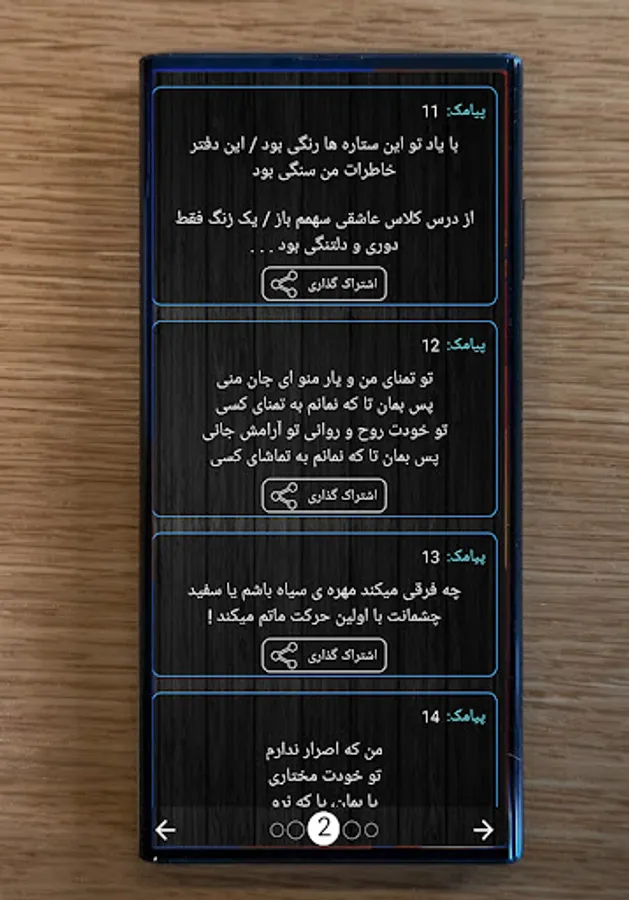 پیامک: 11
با یاد تو این ستاره ها رنگی بود / این دفتر
خاطرات من سنگی بود
از درس کلاس عاشقی سهمم باز / یک زنگ فقط
دوری و دلتنگی بود . . .
اشتراک گذاری
پیامک: 12
تو تمنای من و یار منو ای جان منی
پس بمان تا که نمانم به تمنای کسی
تو خودت روح و روانی تو آرامش جانی
پس بمان تا که نمانم به تماشای کسی
اشتراک گذاری
پیامک: 13
چه فرقی میکند مهره ی سیاه باشم یا سفید
چشمانت با اولین حرکت ماتم میکند !
اشتراک گذاری
پیامک: 14
من که اصرار ندارم
تو خودت مختاری
یا بمان، یا که نرو
2